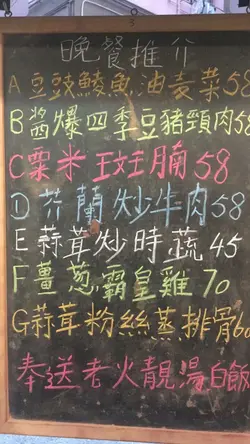 晚餐推介
A豆豉鯪魚油麦菜58
B醬爆四季豆豬頸肉58
C栗米玨腩58
D芥蘭炒牛肉58
E蒜茸炒時蔬45
F薑葱霸皇雞70
G蒜茸粉絲蒸排骨60
奉送老火靚湯白飯